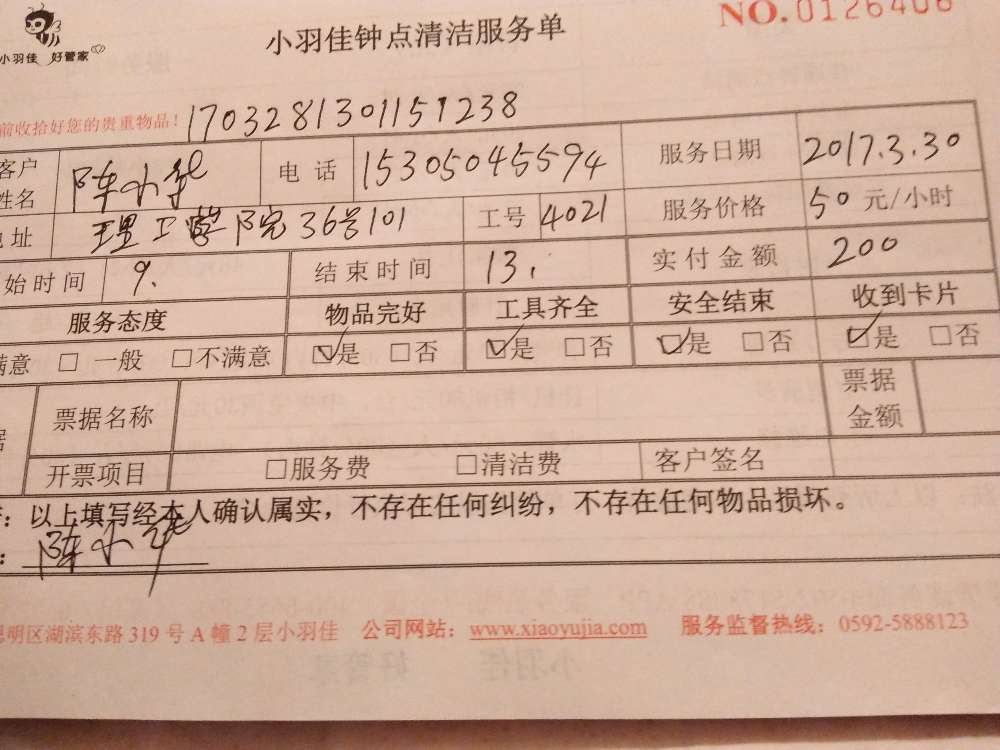 NO.0126406
小羽佳钟点清洁服务单
小羽佳 好管家
前收拾好您的贵重物品！ 1703281301151238
客户姓名 陈小华 电话 15305045594 服务日期 2017.3.30
地址 理工学院36号101 工号 4021 服务价格 50 元/小时
始时间 9. 结束时间 13. 实付金额 200
服务态度 物品完好 工具齐全 安全结束 收到卡片
满意 □ 一般 □不满意 ☑是 □否 ☑是 □否 ☑是 □否 ☑是 □否
据 票据名称 票据金额
开票项目 □服务费 □清洁费 客户签名
：以上填写经本人确认属实，不存在任何纠纷，不存在任何物品损坏。
：陈小华
明区湖滨东路 319 号 A 幢 2 层小羽佳 公司网站：www.xiaoyujia.com 服务监督热线：0592-5888123